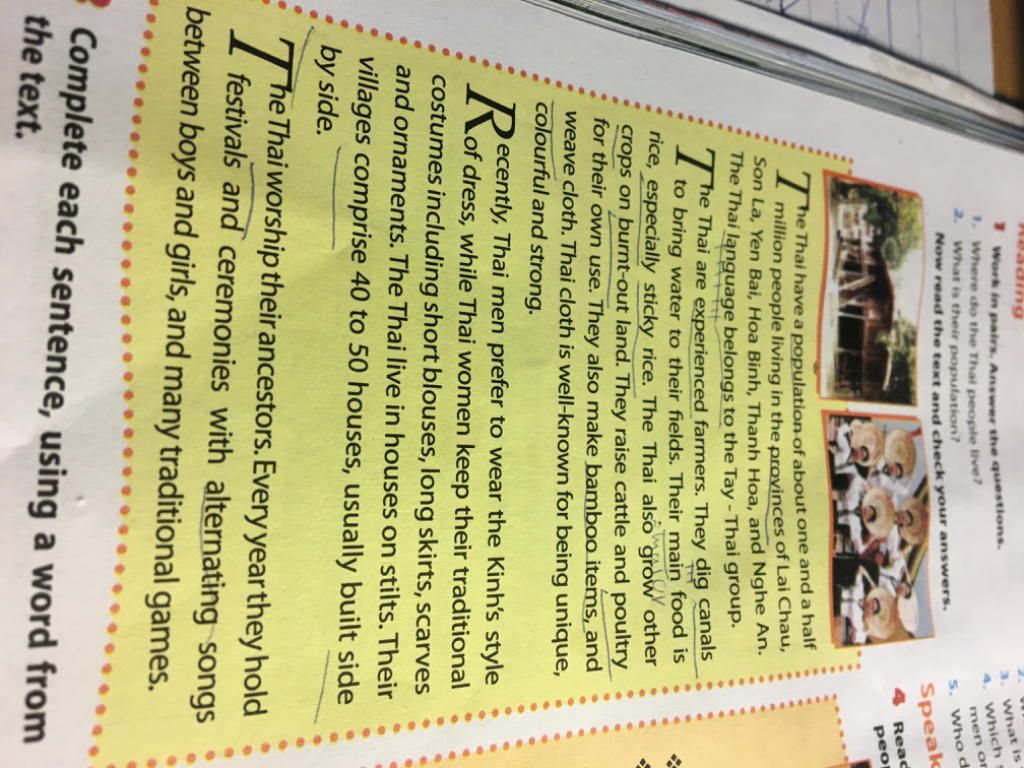 Reading
1 Work in pairs. Answer the questions.
1. Where do the Thai people live?
2. What is their population?
Now read the text and check your answers.
The Thai have a population of about one and a half
million people living in the provinces of Lai Chau,
Son La, Yen Bai, Hoa Binh, Thanh Hoa, and Nghe An.
The Thai language belongs to the Tay - Thai group.
The Thai are experienced farmers. They dig canals
to bring water to their fields. Their main food is
rice, especially sticky rice. The Thai also grow other
crops on burnt-out land. They raise cattle and poultry
for their own use. They also make bamboo items, and
weave cloth. Thai cloth is well-known for being unique,
colourful and strong.
Recently, Thai men prefer to wear the Kinh's style
of dress, while Thai women keep their traditional
costumes including short blouses, long skirts, scarves
and ornaments. The Thai live in houses on stilts. Their
villages comprise 40 to 50 houses, usually built side
by side.
The Thai worship their ancestors. Every year they hold
festivals and ceremonies with alternating songs
between boys and girls, and many traditional games.
Complete each sentence, using a word from
the text.
2.
3. What is
4. Which
men or
5. Who d
Speak
4 Read